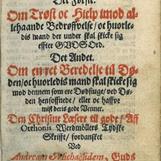 Det Første.
Om Trøst oc Hielp imod al-
lehaande Bedrøffvelse, oc huorle-
dis mand der under skal skicke sig
effter GUDS Ord.
Det Andet.
Om en ret Beredelse til Dø-
den, oc huorledis mand skal skicke sig
imod dennem som ere Dødsiuge, ved Dø-
den hensoffnede / eller oc haffve
mist deris gode Venner.
Den Christne Læsere til gode / Aff
Otthonis Werdmüllers Tydske
Skrifft, fordansket
Ved
Andream Michaelsidem, Guds